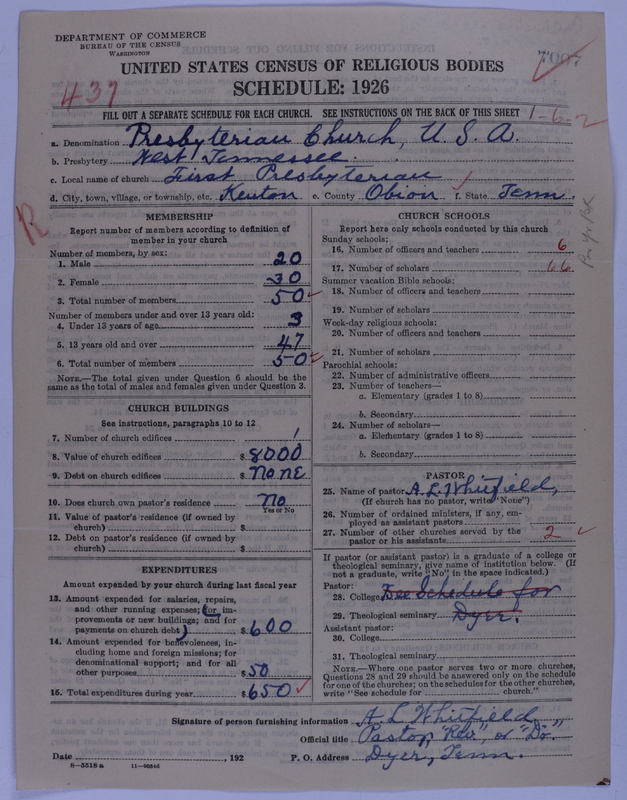 DEPARTMENT OF COMMERCE
BUREAU OF THE CENSUS
WASHINGTON
UNITED STATES CENSUS OF RELIGIOUS BODIES
SCHEDULE: 1926
437
FILL OUT A SEPARATE SCHEDULE FOR EACH CHURCH. SEE INSTRUCTIONS ON THE BACK OF THIS SHEET
1-6-2
a. Denomination Presbyterian Church, U. S. A.
b. Presbytery West Tennessee.
c. Local name of church First Presbyterian
d. City, town, village, or township, etc. Kenton e. County Obion f. State Tenn.
R
MEMBERSHIP
Report number of members according to definition of
member in your church
Number of members, by sex:
1. Male 20
2. Female 30
3. Total number of members 50
Number of members under and over 13 years old:
4. Under 13 years of age 3
5. 13 years old and over 47
6. Total number of members 50
NOTE.—The total given under Question 6 should be the
same as the total of males and females given under Question 3.
CHURCH BUILDINGS
See instructions, paragraphs 10 to 12
7. Number of church edifices 1
8. Value of church edifices $8000
9. Debt on church edifices $ none
10. Does church own pastor's residence no
Yes or No
11. Value of pastor's residence (if owned by
church) $
12. Debt on pastor's residence (if owned by
church) $
EXPENDITURES
Amount expended by your church during last fiscal year
13. Amount expended for salaries, repairs,
and other running expenses; (for im-
provements or new buildings; and for
payments on church debt) $600
14. Amount expended for benevolences, in-
cluding home and foreign missions; for
denominational support; and for all
other purposes $50
15. Total expenditures during year $650
CHURCH SCHOOLS
Report here only schools conducted by this church
Sunday schools:
16. Number of officers and teachers 6
17. Number of scholars 66
Summer vacation Bible schools:
18. Number of officers and teachers
19. Number of scholars
Week-day religious schools:
20. Number of officers and teachers
21. Number of scholars
Parochial schools:
22. Number of administrative officers
23. Number of teachers—
a. Elementary (grades 1 to 8)
b. Secondary
24. Number of scholars—
a. Elementary (grades 1 to 8)
b. Secondary
PASTOR
25. Name of pastor A. L. Whitfield,
(If church has no pastor, write "None")
26. Number of ordained ministers, if any, em-
ployed as assistant pastors
27. Number of other churches served by the
pastor or his assistants 2
If pastor (or assistant pastor) is a graduate of a college or
theological seminary, give name of institution below. (If
not a graduate, write "No" in the space indicated.)
Pastor:
28. College See Schedule for
29. Theological seminary Dyer.
Assistant pastor:
30. College
31. Theological seminary
NOTE.—Where one pastor serves two or more churches,
Questions 28 and 29 should be answered only on the schedule
for one of the churches; on the schedules for the other churches,
write "See schedule for church."
Signature of person furnishing information A. L. Whitfield,
Official title Pastor, "Rev." or "Dr."
Date , 192 P. O. Address Dyer, Tenn.
8—5518 a